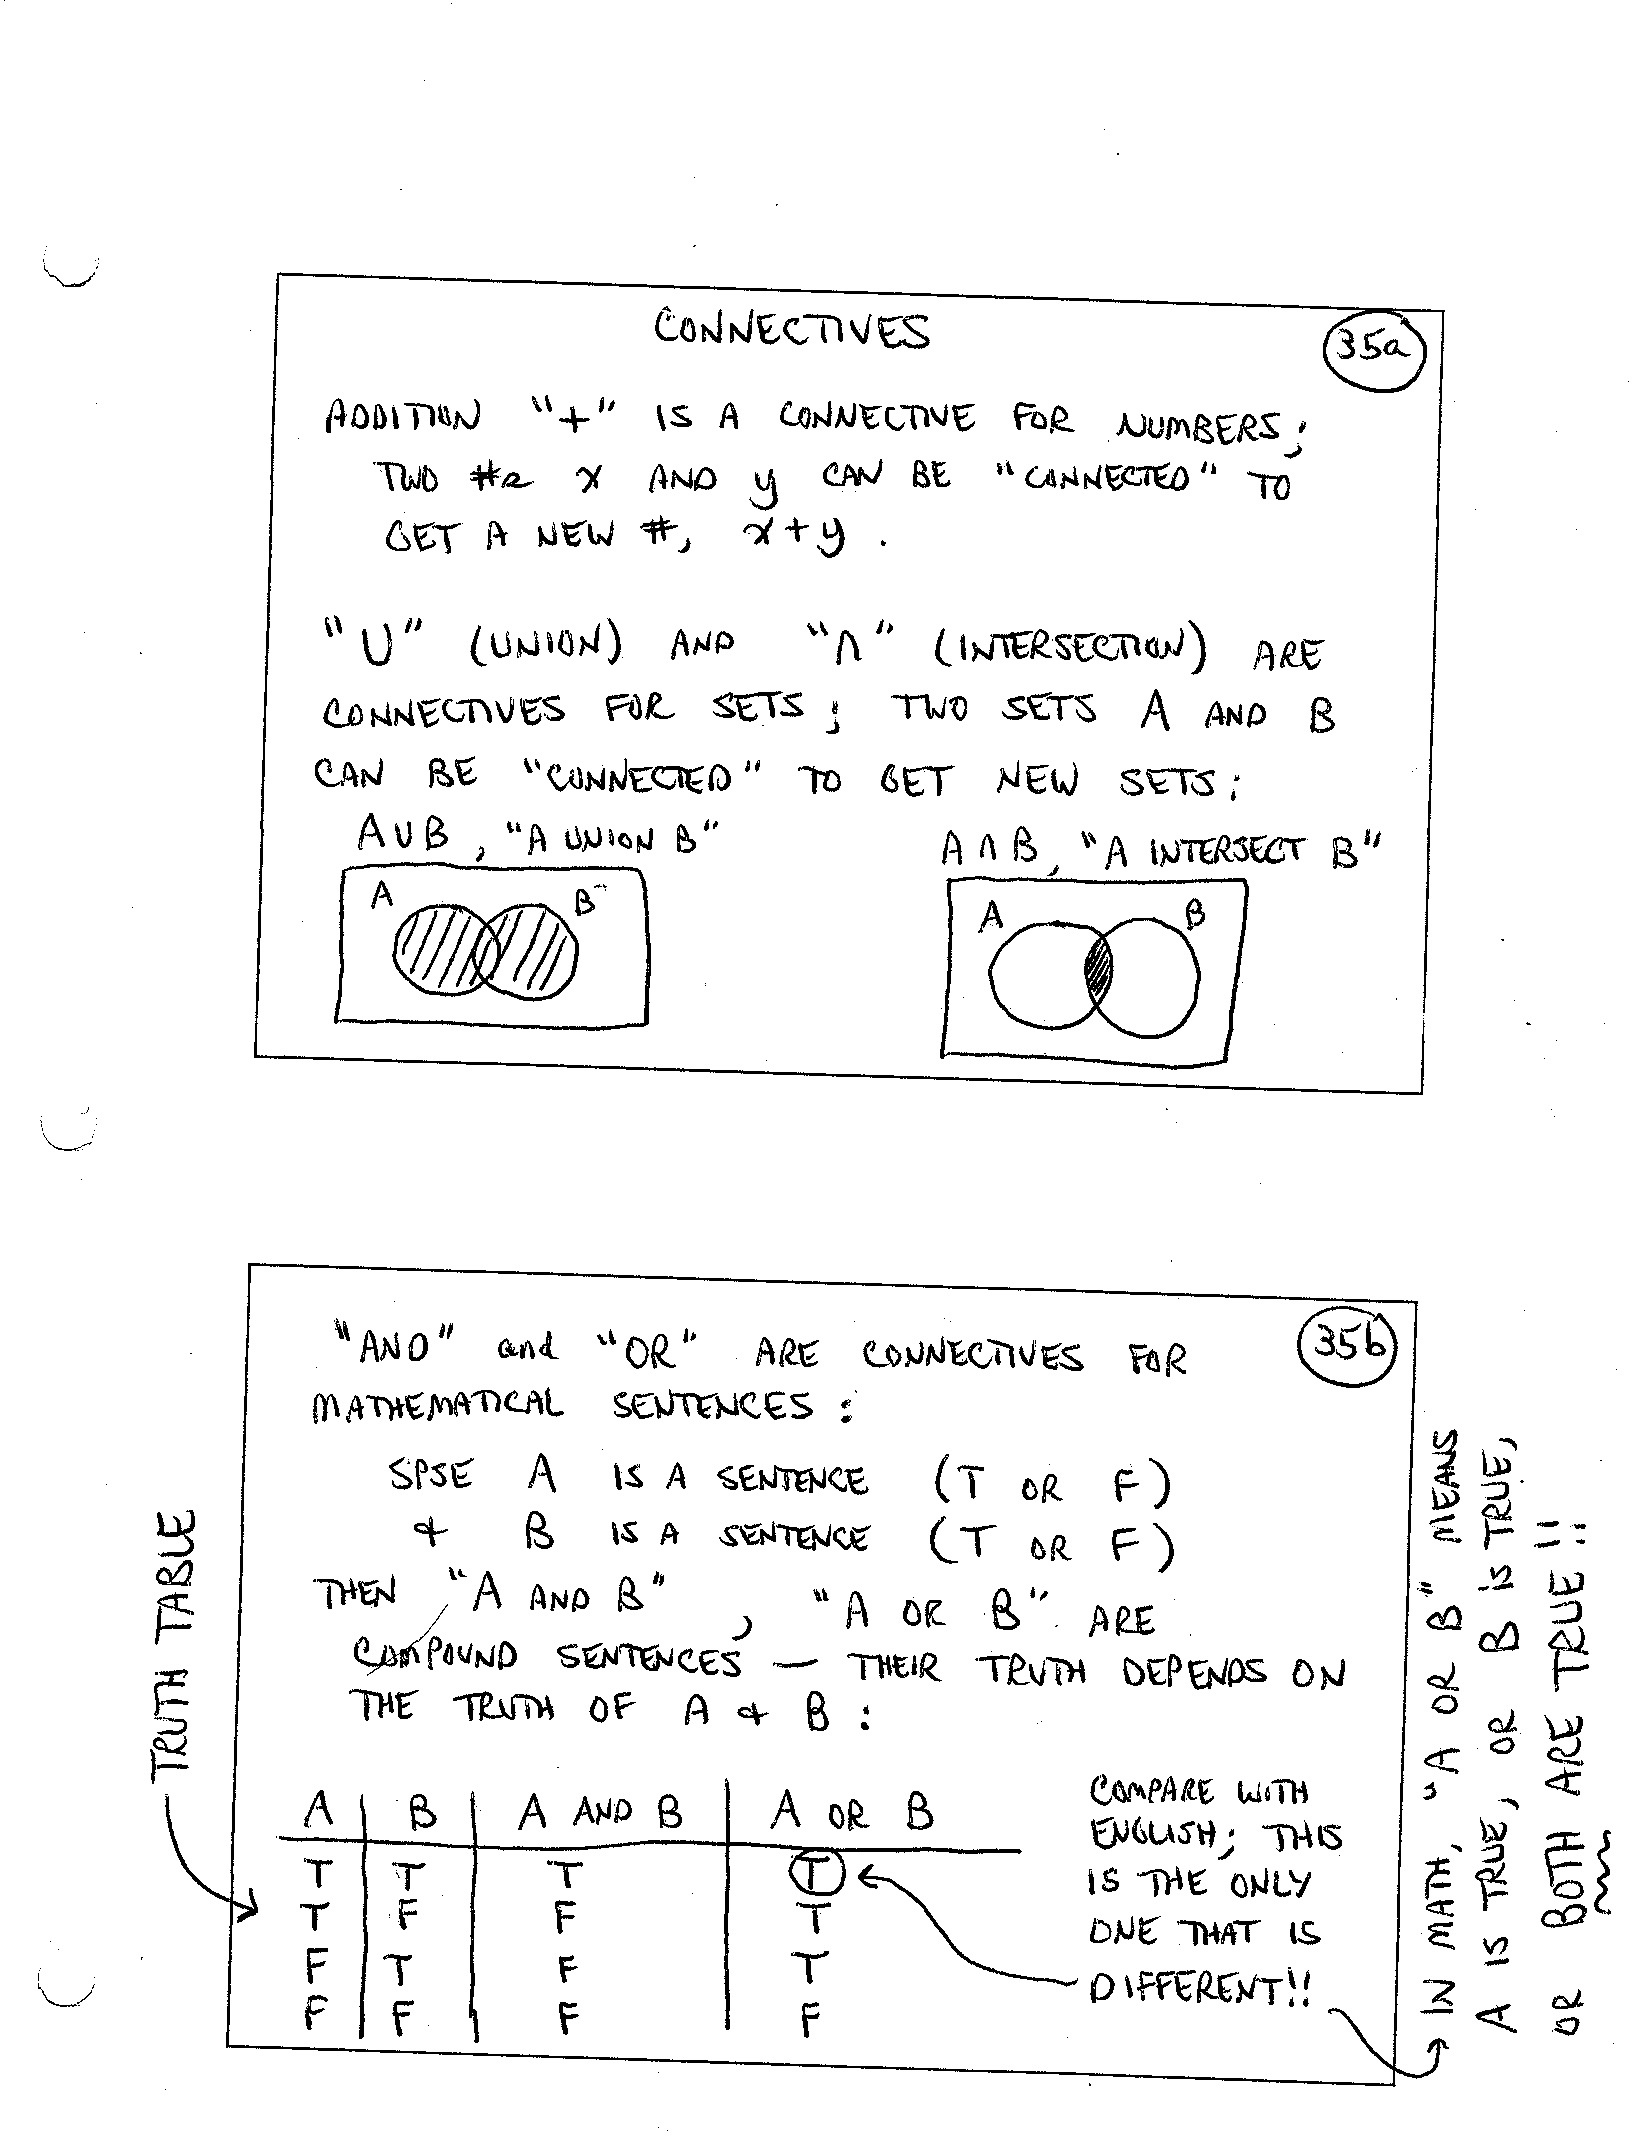 CONNECTIVES
35a
ADDITION "+" IS A CONNECTIVE FOR NUMBERS;
TWO #s x AND y CAN BE "CONNECTED" TO
GET A NEW #, x+y .
"∪" (UNION) AND "∩" (INTERSECTION) ARE
CONNECTIVES FOR SETS; TWO SETS A AND B
CAN BE "CONNECTED" TO GET NEW SETS:
A∪B, "A UNION B"
A∩B, "A INTERSECT B"
A B
A B
35b
"AND" and "OR" ARE CONNECTIVES FOR
MATHEMATICAL SENTENCES:
SPSE A IS A SENTENCE (T OR F)
& B IS A SENTENCE (T OR F)
THEN "A AND B", "A OR B" ARE
COMPOUND SENTENCES — THEIR TRUTH DEPENDS ON
THE TRUTH OF A & B:
A B A AND B A OR B
T T T T
T F F T
F T F T
F F F F
COMPARE WITH
ENGLISH; THIS
IS THE ONLY
ONE THAT IS
DIFFERENT!!
TRUTH TABLE
IN MATH, "A OR B" MEANS
A IS TRUE, OR B IS TRUE,
OR BOTH ARE TRUE!!